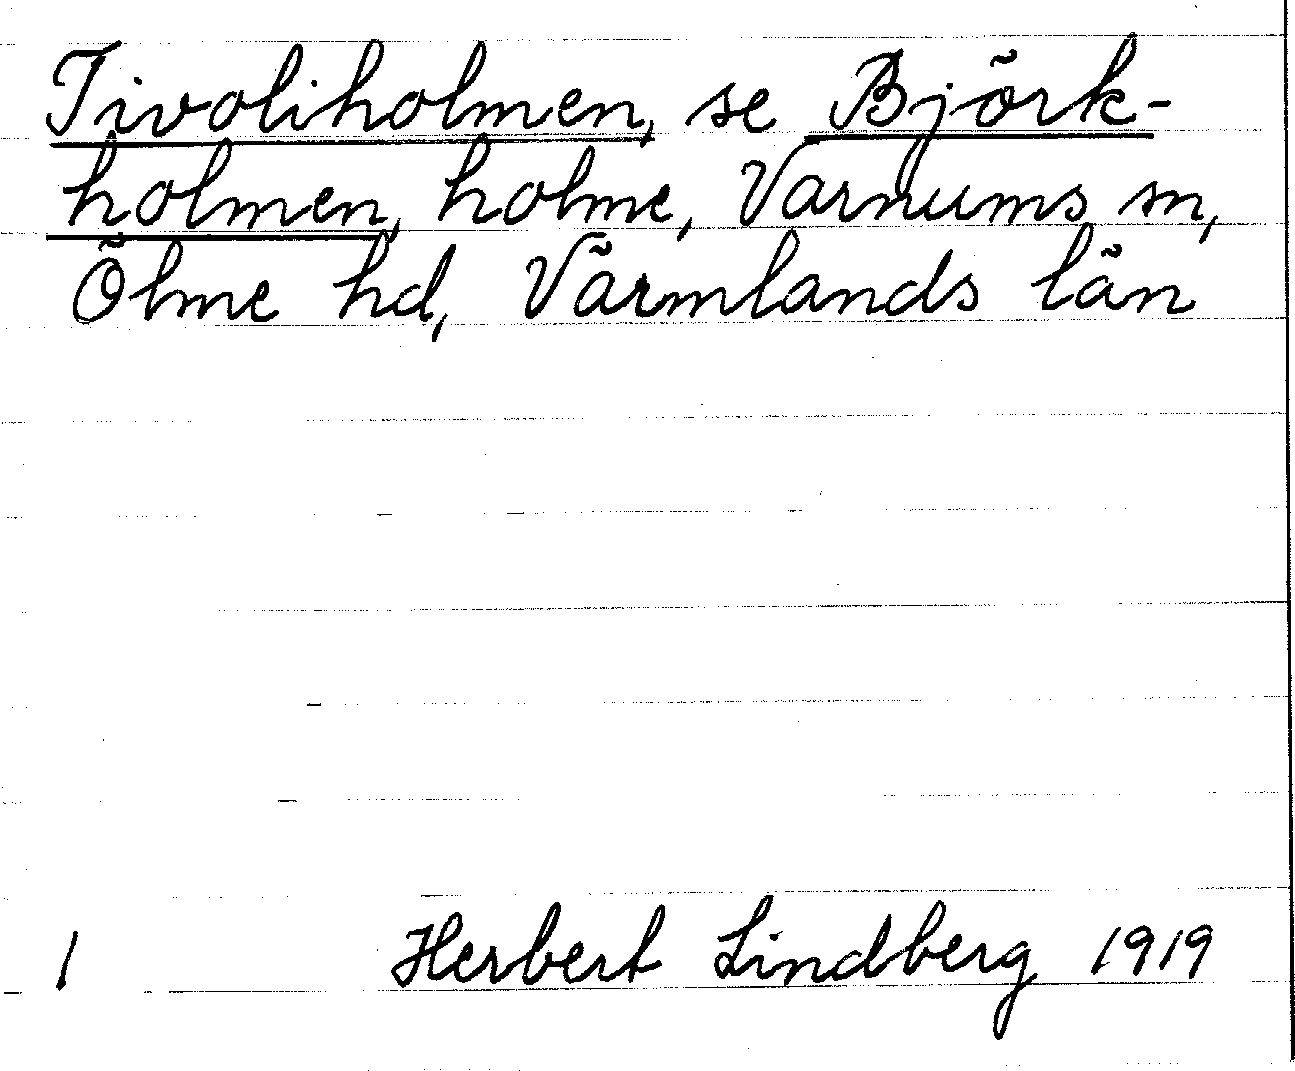 Tivoliholmen, se Björk-
holmen, holme, Varnums sn,
Ölme hd, Värmlands län
1 Herbert Lindberg 1919